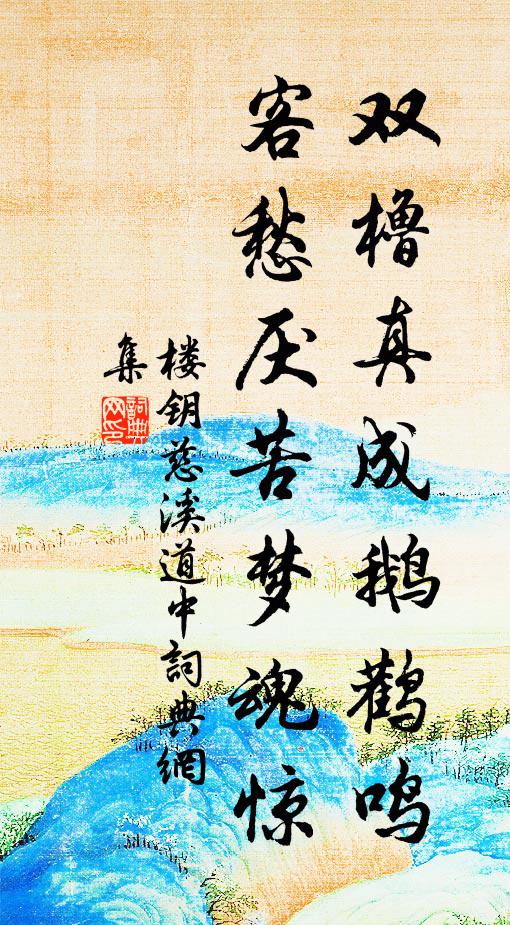 双橹真成鹅鹳鸣
客愁厌苦梦魂惊
楼钥慈溪道中詞典網
集
詞典網印